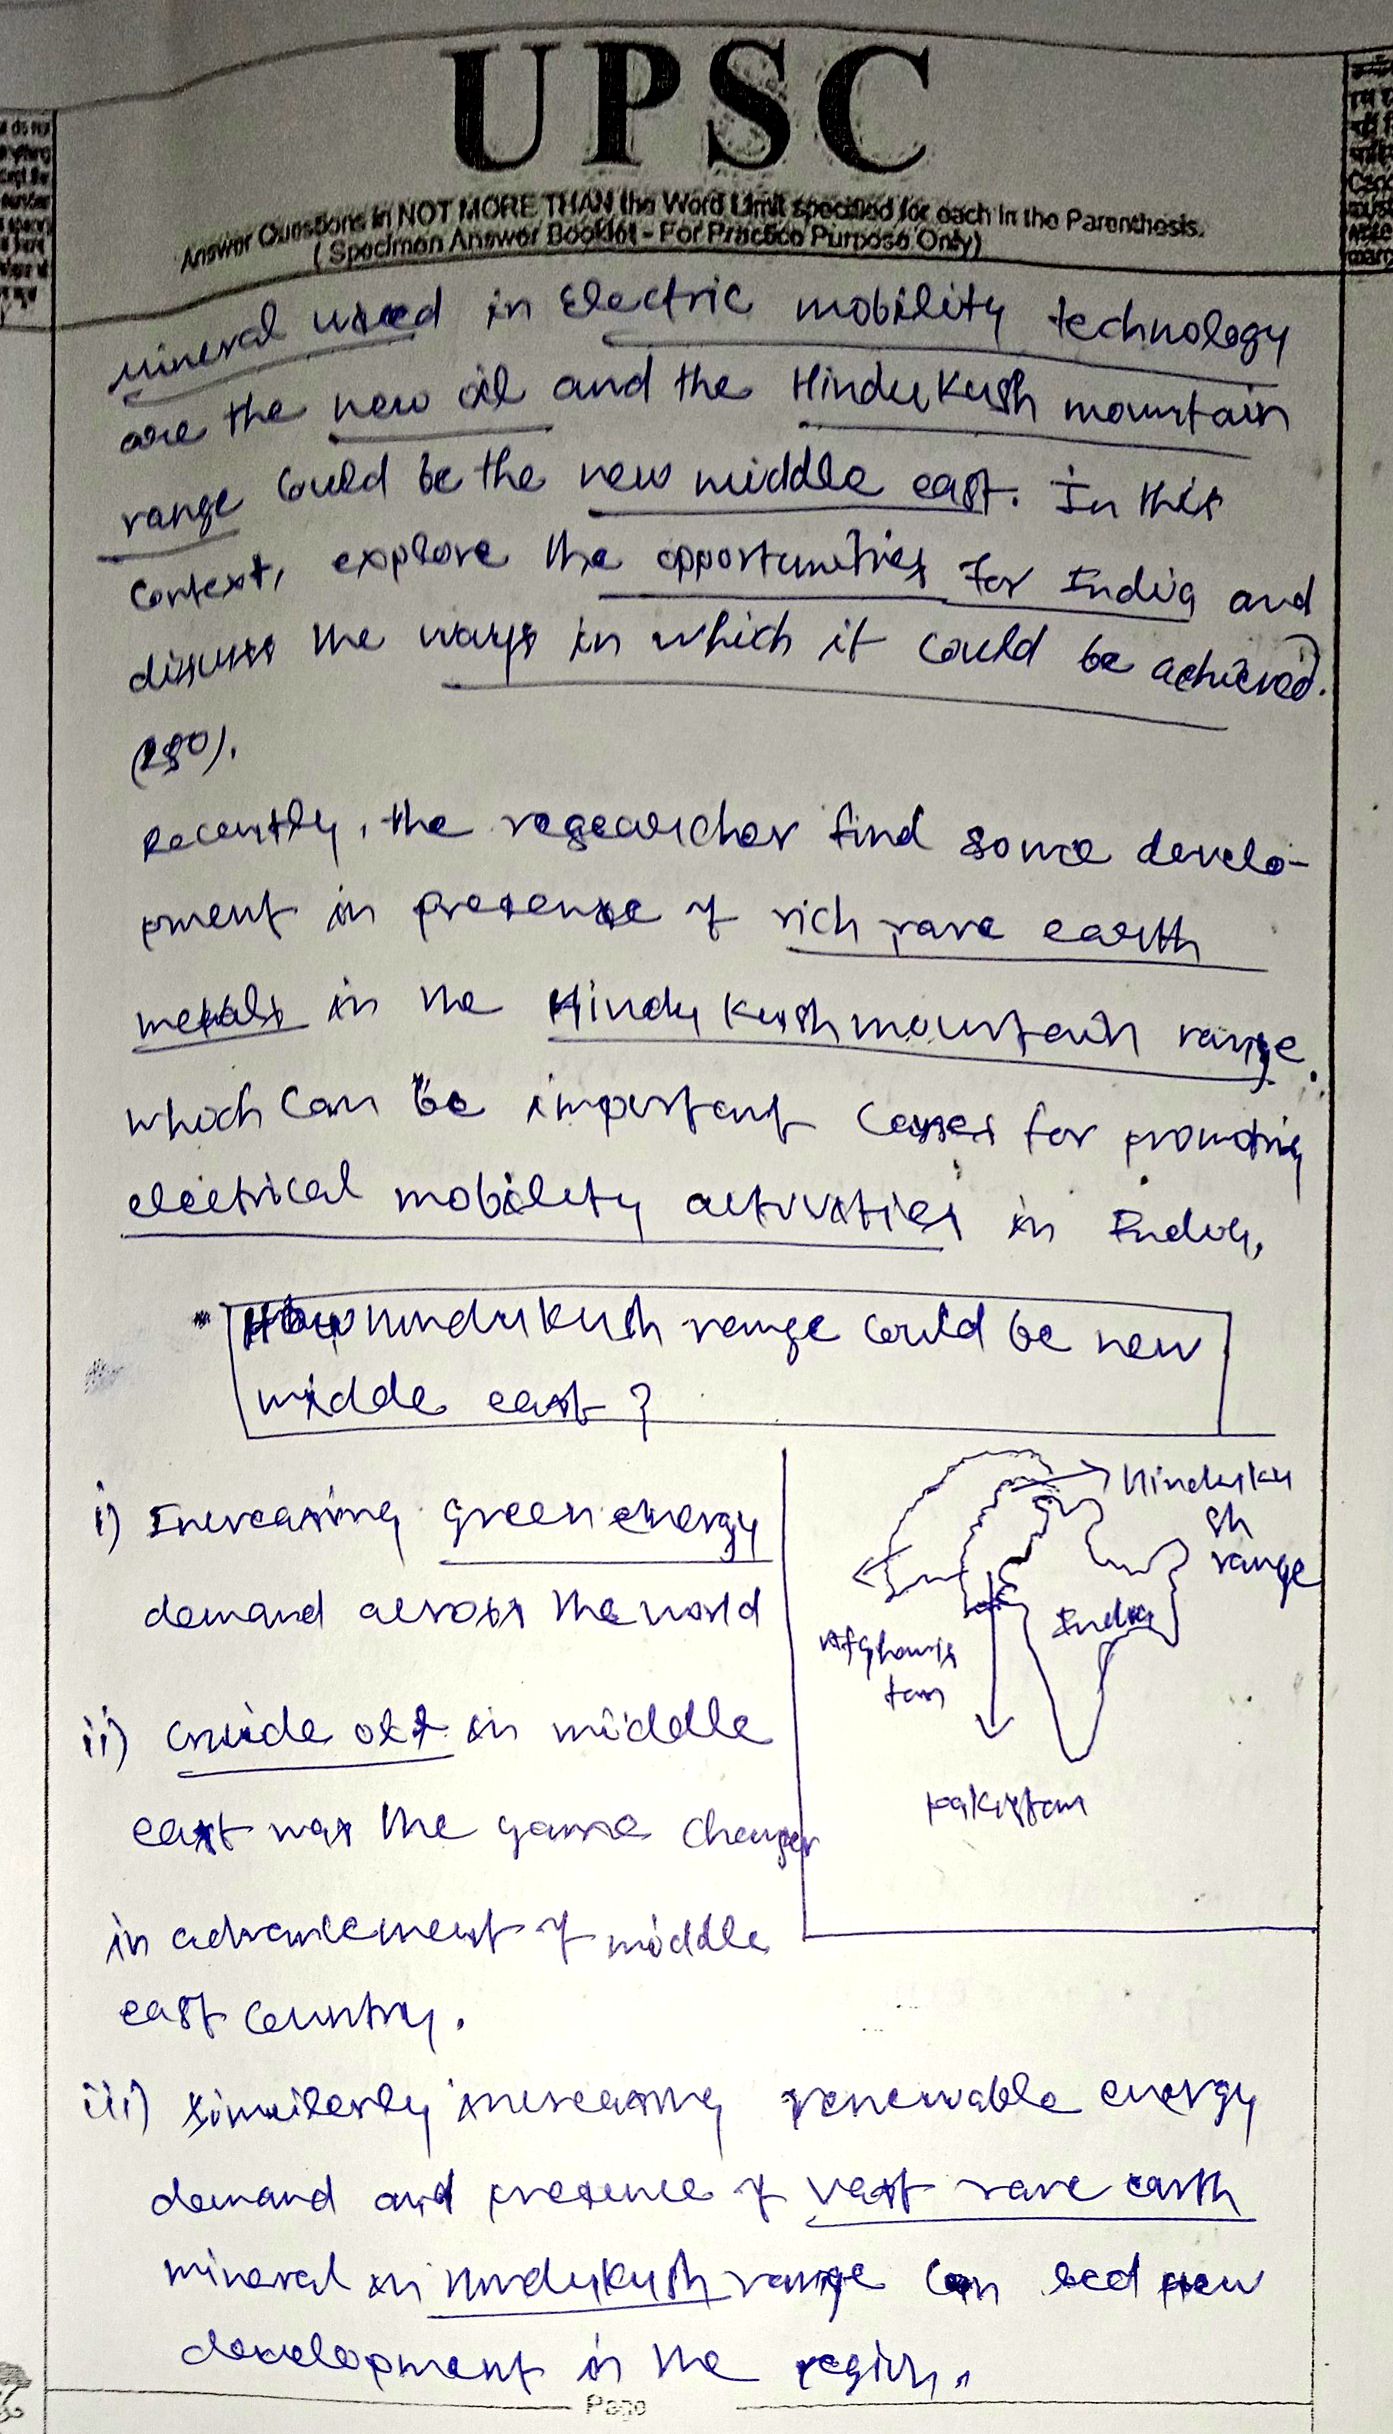 UPSC
Answer Questions in NOT MORE THAN the Word Limit specified for each in the Parenthesis.
( Specimen Answer Booklet - For Practice Purpose Only)
mineral used in Electric mobility technology
are the new oil and the Hindu Kush mountain
range could be the new middle east. In this
context, explore the opportunities for India and
discuss the ways in which it could be achieved.
(250).
Recently, the researcher find some develo-
pment in presense of rich rare earth
metals in the Hindu Kush mountain range.
which can be important for promoting
electrical mobility activities in India.
How hindu kush range could be new
middle east ?
i) Increasing green energy
demand across the world
ii) crude oil in middle
east was the game changer
in advancement of middle
east country.
Hinduku
sh
range
India
Afghanis
tan
Pakistan
iii) similarly increasing renewable energy
demand and presence of vast rare earth
mineral in hindukush range can led new
development in the region.
Page